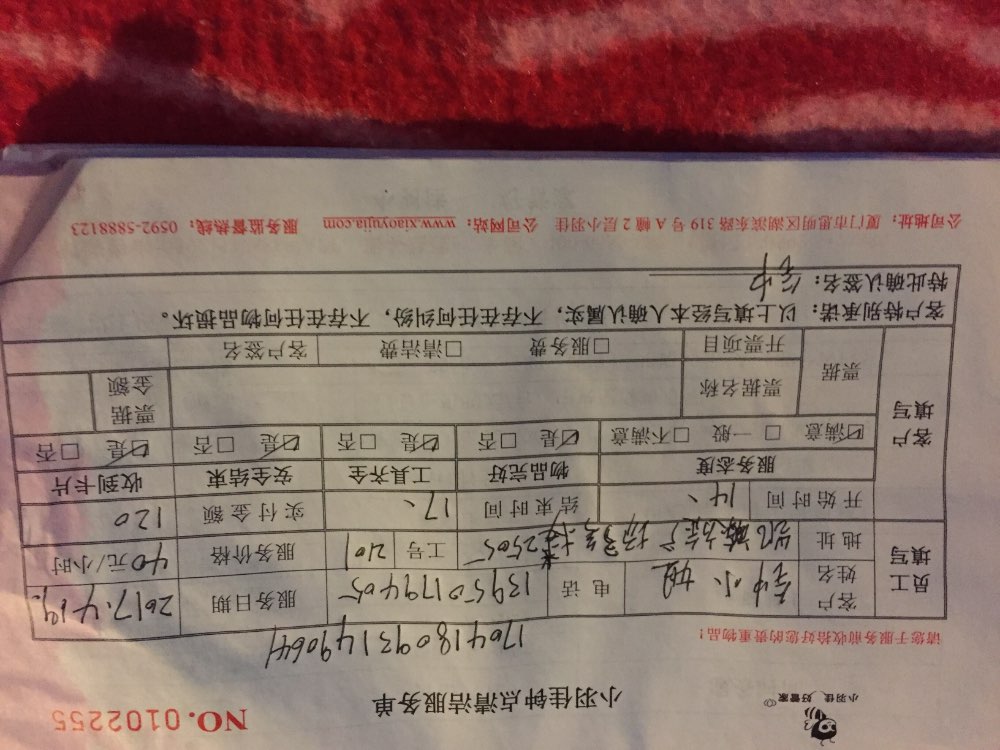 小羽佳 好管家
小羽佳钟点清洁服务单
NO. 0102255
请您于服务前收拾好您的贵重物品!
员工填写
客户姓名 小姐 电话 13950179405 服务日期 2017.4.19.
地址 2505 工号 201 服务价格 40元/小时
开始时间 14、 结束时间 17、 实付金额 120
客户填写
服务态度 物品完好 工具齐全 安全结束 收到卡片
☑满意 □一般 □不满意 ☑是 □否 ☑是 □否 ☑是 □否 ☑是 □否
票据 票据名称 票据金额
开票项目 □服务费 □清洁费 客户签名
客户特别承诺:以上填写经本人确认属实,不存在任何纠纷,不存在任何物品损坏。
特此确认签名:
公司地址:厦门市思明区湖滨东路 319 号 A 幢 2 层小羽佳 公司网站:www.xiaoyujia.com 服务监督热线:0592-5888123